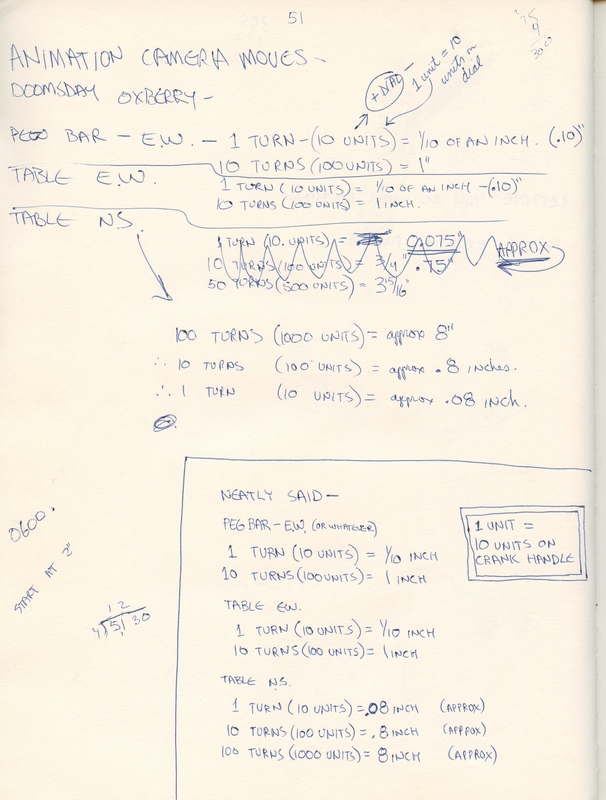 51
35
4
300
ANIMATION CAMERA MOVES -
DOOMSDAY OXBERRY -
+ DIAL - 1 unit = 10 units on dial
PEG BAR - E.W. - 1 TURN - (10 UNITS) = 1/10 OF AN INCH. (.10)"
10 TURNS (100 UNITS) = 1"
TABLE E.W.
1 TURN (10 UNITS) = 1/10 OF AN INCH - (.10)"
10 TURNS (100 UNITS) = 1 INCH.
TABLE N.S.
1 TURN (10. UNITS) = 0.075"
10 TURNS (100 UNITS) = 3/4" .75"
APPROX
50 TURNS (500 UNITS) = 3 15/16"
100 TURNS (1000 UNITS) = approx 8"
∴ 10 TURNS (100 UNITS) = approx .8 INCHES.
∴ 1 TURN (10 UNITS) = approx .08 INCH.
0600.
START AT 2"
12
4 5130
NEATLY SAID -
PEG BAR - E.W. (OR WHATEVER)
1 TURN (10 UNITS) = 1/10 INCH
10 TURNS (100 UNITS) = 1 INCH
1 UNIT =
10 UNITS ON
CRANK HANDLE
TABLE E.W.
1 TURN (10 UNITS) = 1/10 INCH
10 TURNS (100 UNITS) = 1 INCH
TABLE N.S.
1 TURN (10 UNITS) = .08 INCH (APPROX)
10 TURNS (100 UNITS) = .8 INCH (APPROX)
100 TURNS (1000 UNITS) = 8 INCH (APPROX)